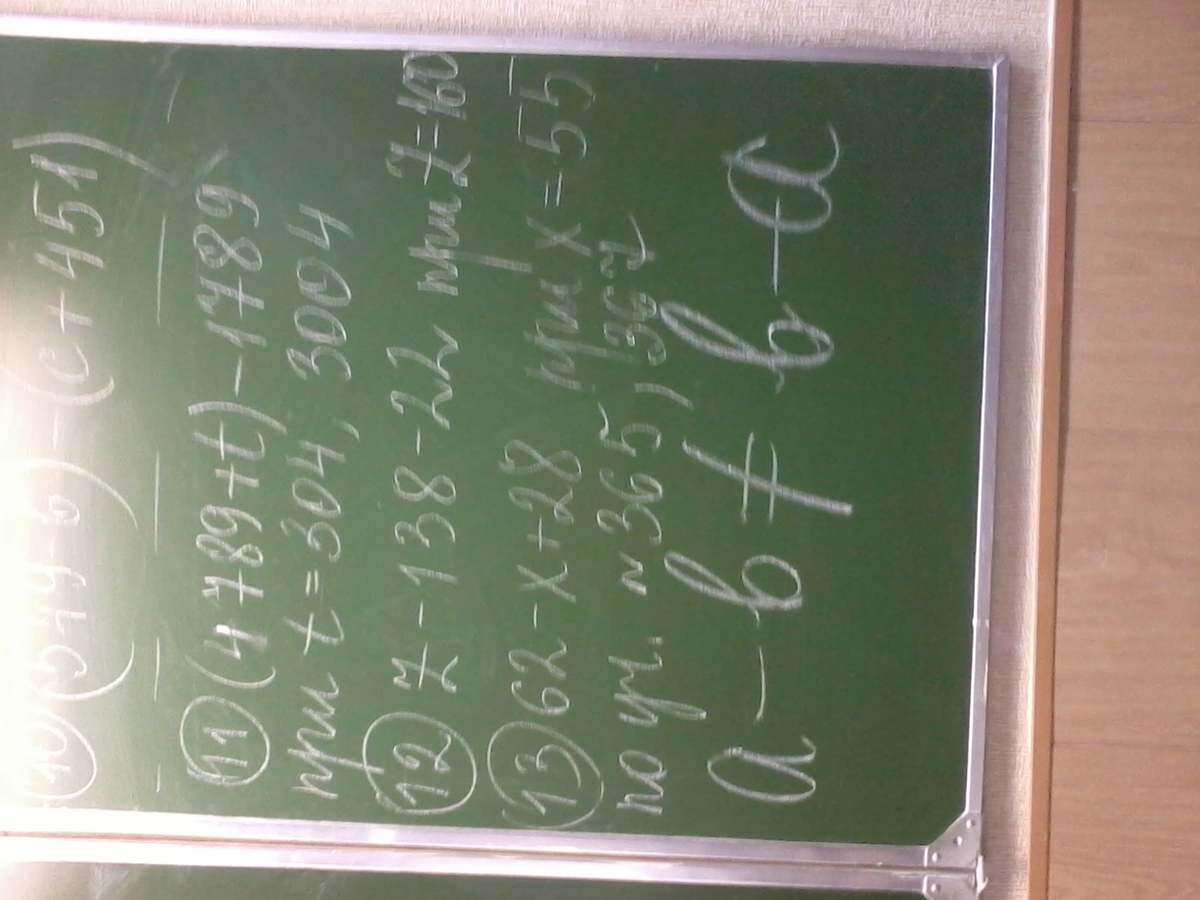 10 (549-b)-(c+451)
11 (4789+t)-1789
при t=304, 3004
12 z-138-22 при z=160
13 62-x+28 при x=55
по уч. N 365, 367
a-b≠b-a